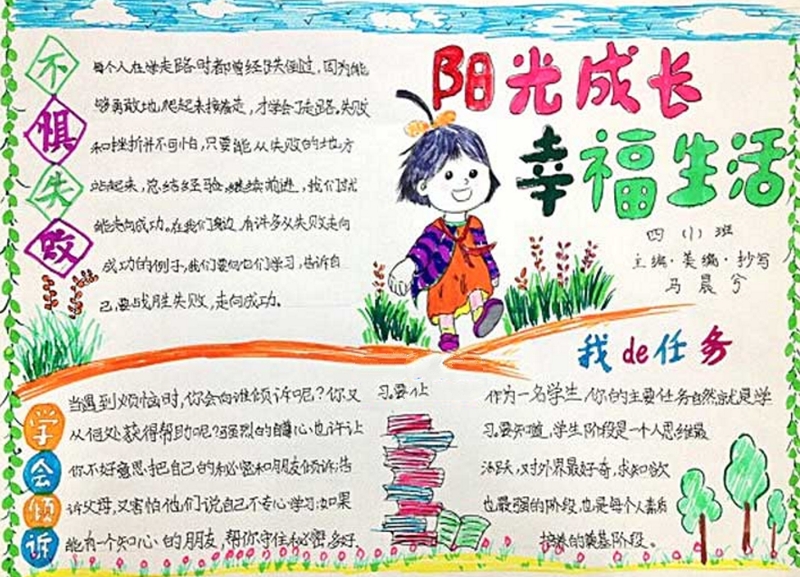 阳光成长
幸福生活
四(1)班
主编·美编·抄写
马晨兮
不惧失败
每个人在学走路时都曾经跌倒过,因为能
够勇敢地爬起来接着走,才学会了走路。失败
和挫折并不可怕,只要能从失败的地方
站起来,总结经验,继续前进,我们就
能走向成功。在我们身边,有许多从失败走向
成功的例子,我们要向它们学习,告诉自
己,要战胜失败,走向成功。
学会倾诉
当遇到烦恼时,你会向谁倾诉呢?你又
从何处获得帮助呢?强烈的自尊心也许让
你不好意思把自己的秘密和朋友倾诉;告
诉父母,又害怕他们说自己不专心学习;如果
能有一个知心的朋友,帮你守住秘密,多好
习。要让
我de任务
作为一名学生,你的主要任务自然就是学
习。要知道,学生阶段是一个人思维最
活跃,对外界最好奇,求知欲
也最强的阶段,也是每个人素质
培养的奠基阶段。